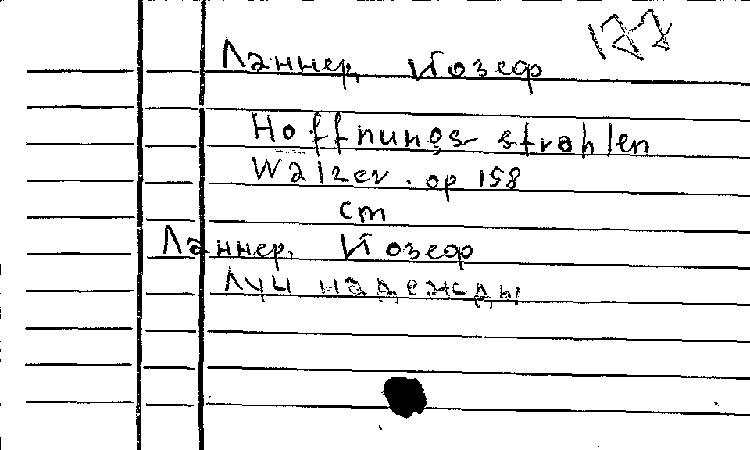 177
Ланнер, Йозеф
Hoffnungs-strahlen
Walzer. op 158
cm
Ланнер, Йозеф
Луч надежды